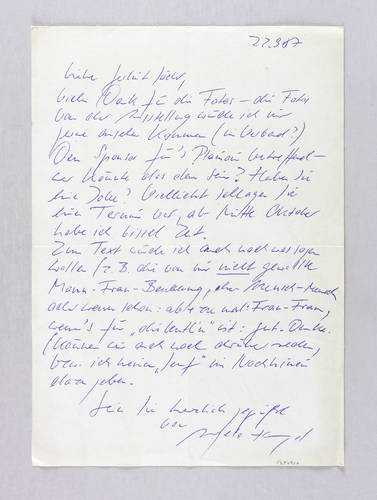 27.9.87
Liebe
vielen Dank für die Fotos – die Fotos
von der Ausstellung würde ich mir
gerne ansehen kommen (in Verbad?)
Den Sponsor für's betreffend –
wer könnte das denn sein? Haben Sie
eine Idee? Vielleicht schlagen Sie
einen Termin vor, ab Mitte Oktober
habe ich bissel Zeit.
Zum Text würde ich auch noch was sagen
wollen (z.B. die von mir nicht gewollte
Mann-Frau-Benennung, eher Mensch-Mensch
oder wenn schon: aber mal: Frau-Frau,
wenn's für ist: gut. Danke.
(Können wir auch noch drüber reden,
bzw. ich meinen „Senf" im Nachhinein
dazu geben.
Seien Sie herzlich gegrüßt
von